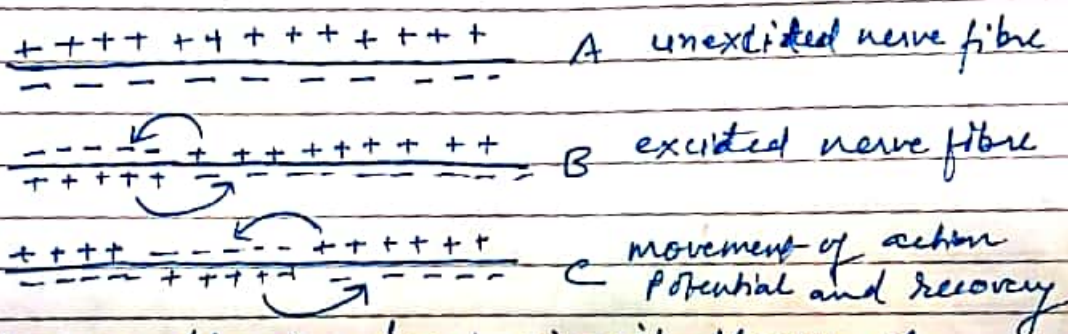 + + + + + + + + + + + + + A unexcited nerve fibre
- - - - - - - - - -
- - - - - + + + + + + + + + B excited nerve fibre
+ + + + + - - - - - - - - -
+ + + + - - - - - + + + + + + C movement of action
- - - - + + + + + - - - - - - Potential and recovery